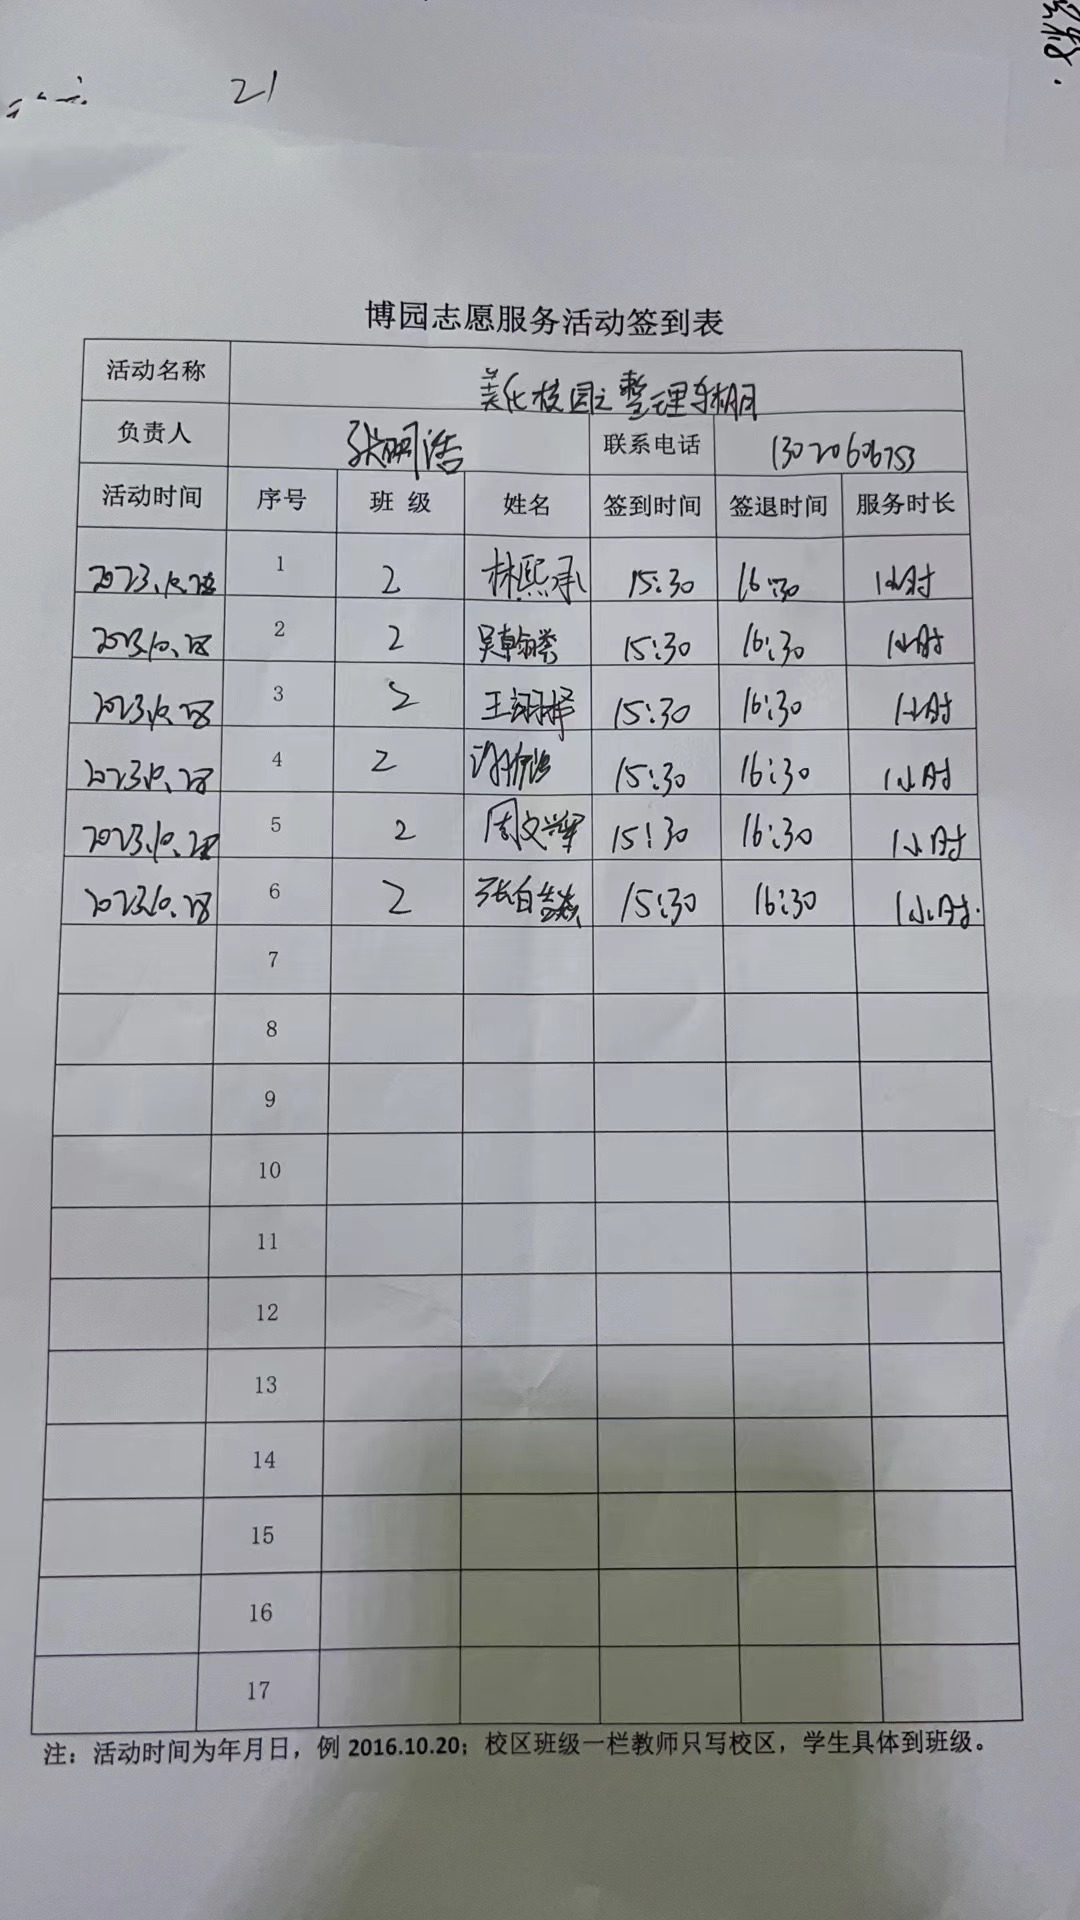 21
博园志愿服务活动签到表
活动名称 美化校园之整理车棚
负责人 张明浩 联系电话 13020606753
活动时间 序号 班 级 姓名 签到时间 签退时间 服务时长
2023.10.28 1 2 林熙承 15:30 16:30 1小时
2023.10.28 2 2 吴翰 15:30 16:30 1小时
2023.10.28 3 2 王 15:30 16:30 1小时
2023.10.28 4 2 谢 15:30 16:30 1小时
2023.10.28 5 2 周文 15:30 16:30 1小时
2023.10.28 6 2 张 15:30 16:30 1小时.
7
8
9
10
11
12
13
14
15
16
17
注：活动时间为年月日，例 2016.10.20；校区班级一栏教师只写校区，学生具体到班级。